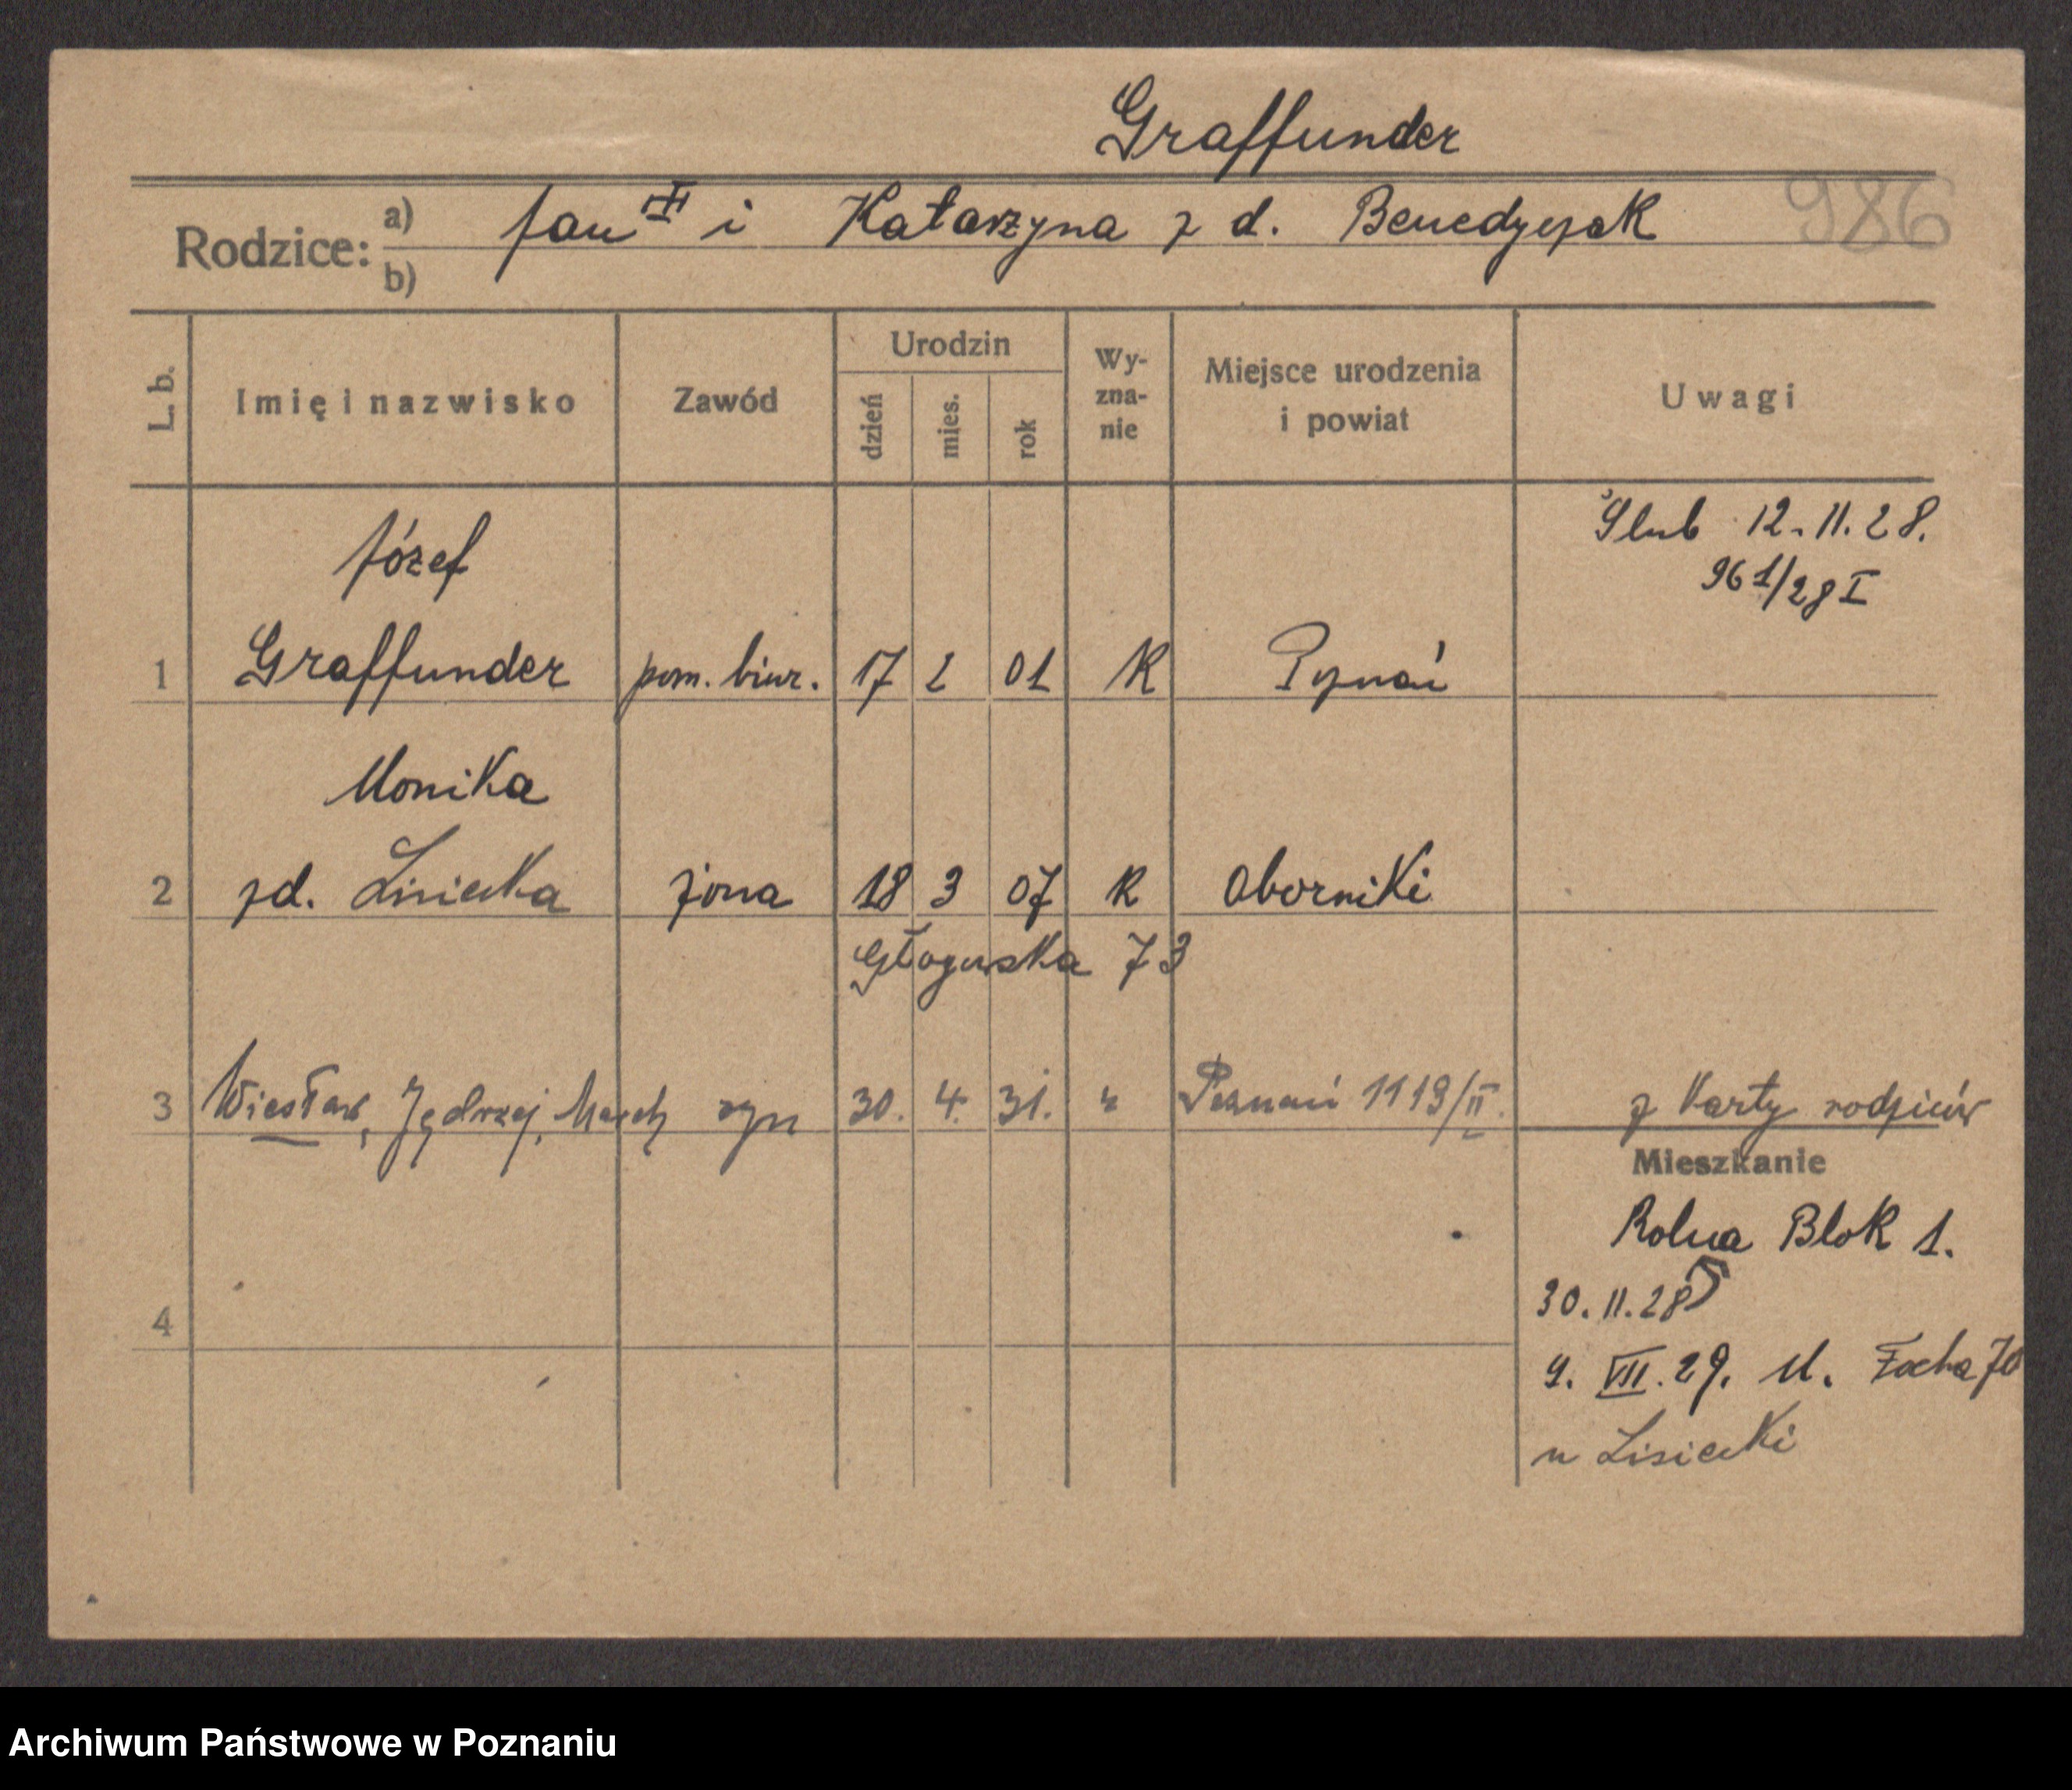 Graffunder
986
Rodzice: a) Jan VI i Katarzyna z d. Benedyczak
b)
L. b. Imię i nazwisko Zawód Urodzin dzień mies. rok Wyznanie Miejsce urodzenia i powiat Uwagi
Ślub 12.11.28.
961/28 I
Józef
1 Graffunder pom. biur. 17 2 01 K Poznań
Monika
2 zd. Lisiecka żona 18 3 07 K Oborniki
Głogowska 73
3 Wiesław, Jędrzej, syn 30. 4. 31. Poznań 1119/II. z Karty rodziców
Mieszkanie
Rolna Blok 1.
30.11.28
4
9. VII. 29. M. Focha 70
u Lisiecki
Archiwum Państwowe w Poznaniu